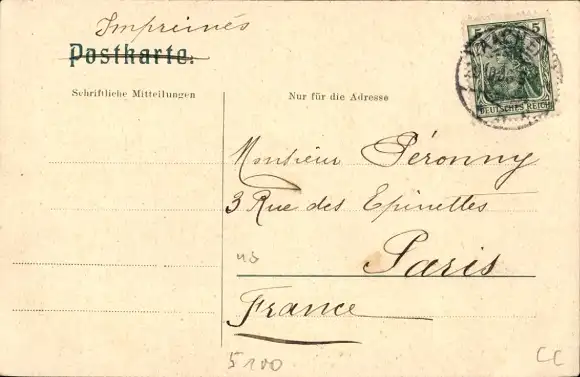 Imprimés
Postkarte.
Schriftliche Mitteilungen
Nur für die Adresse
5 5
AACHEN
DEUTSCHES REICH
Monsieur Péronny
3 Rue des Epinettes
Paris
France
5100
CC